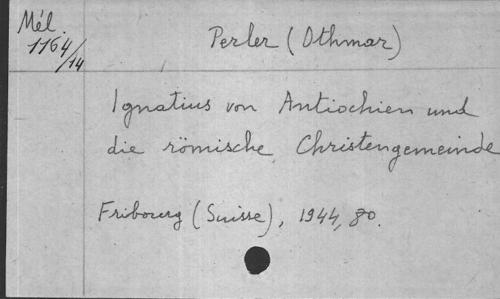 Mél.
1164/14
Perler (Othmar)
Ignatius von Antiochien und
die römische Christengemeinde
Fribourg (Suisse), 1944, 80.